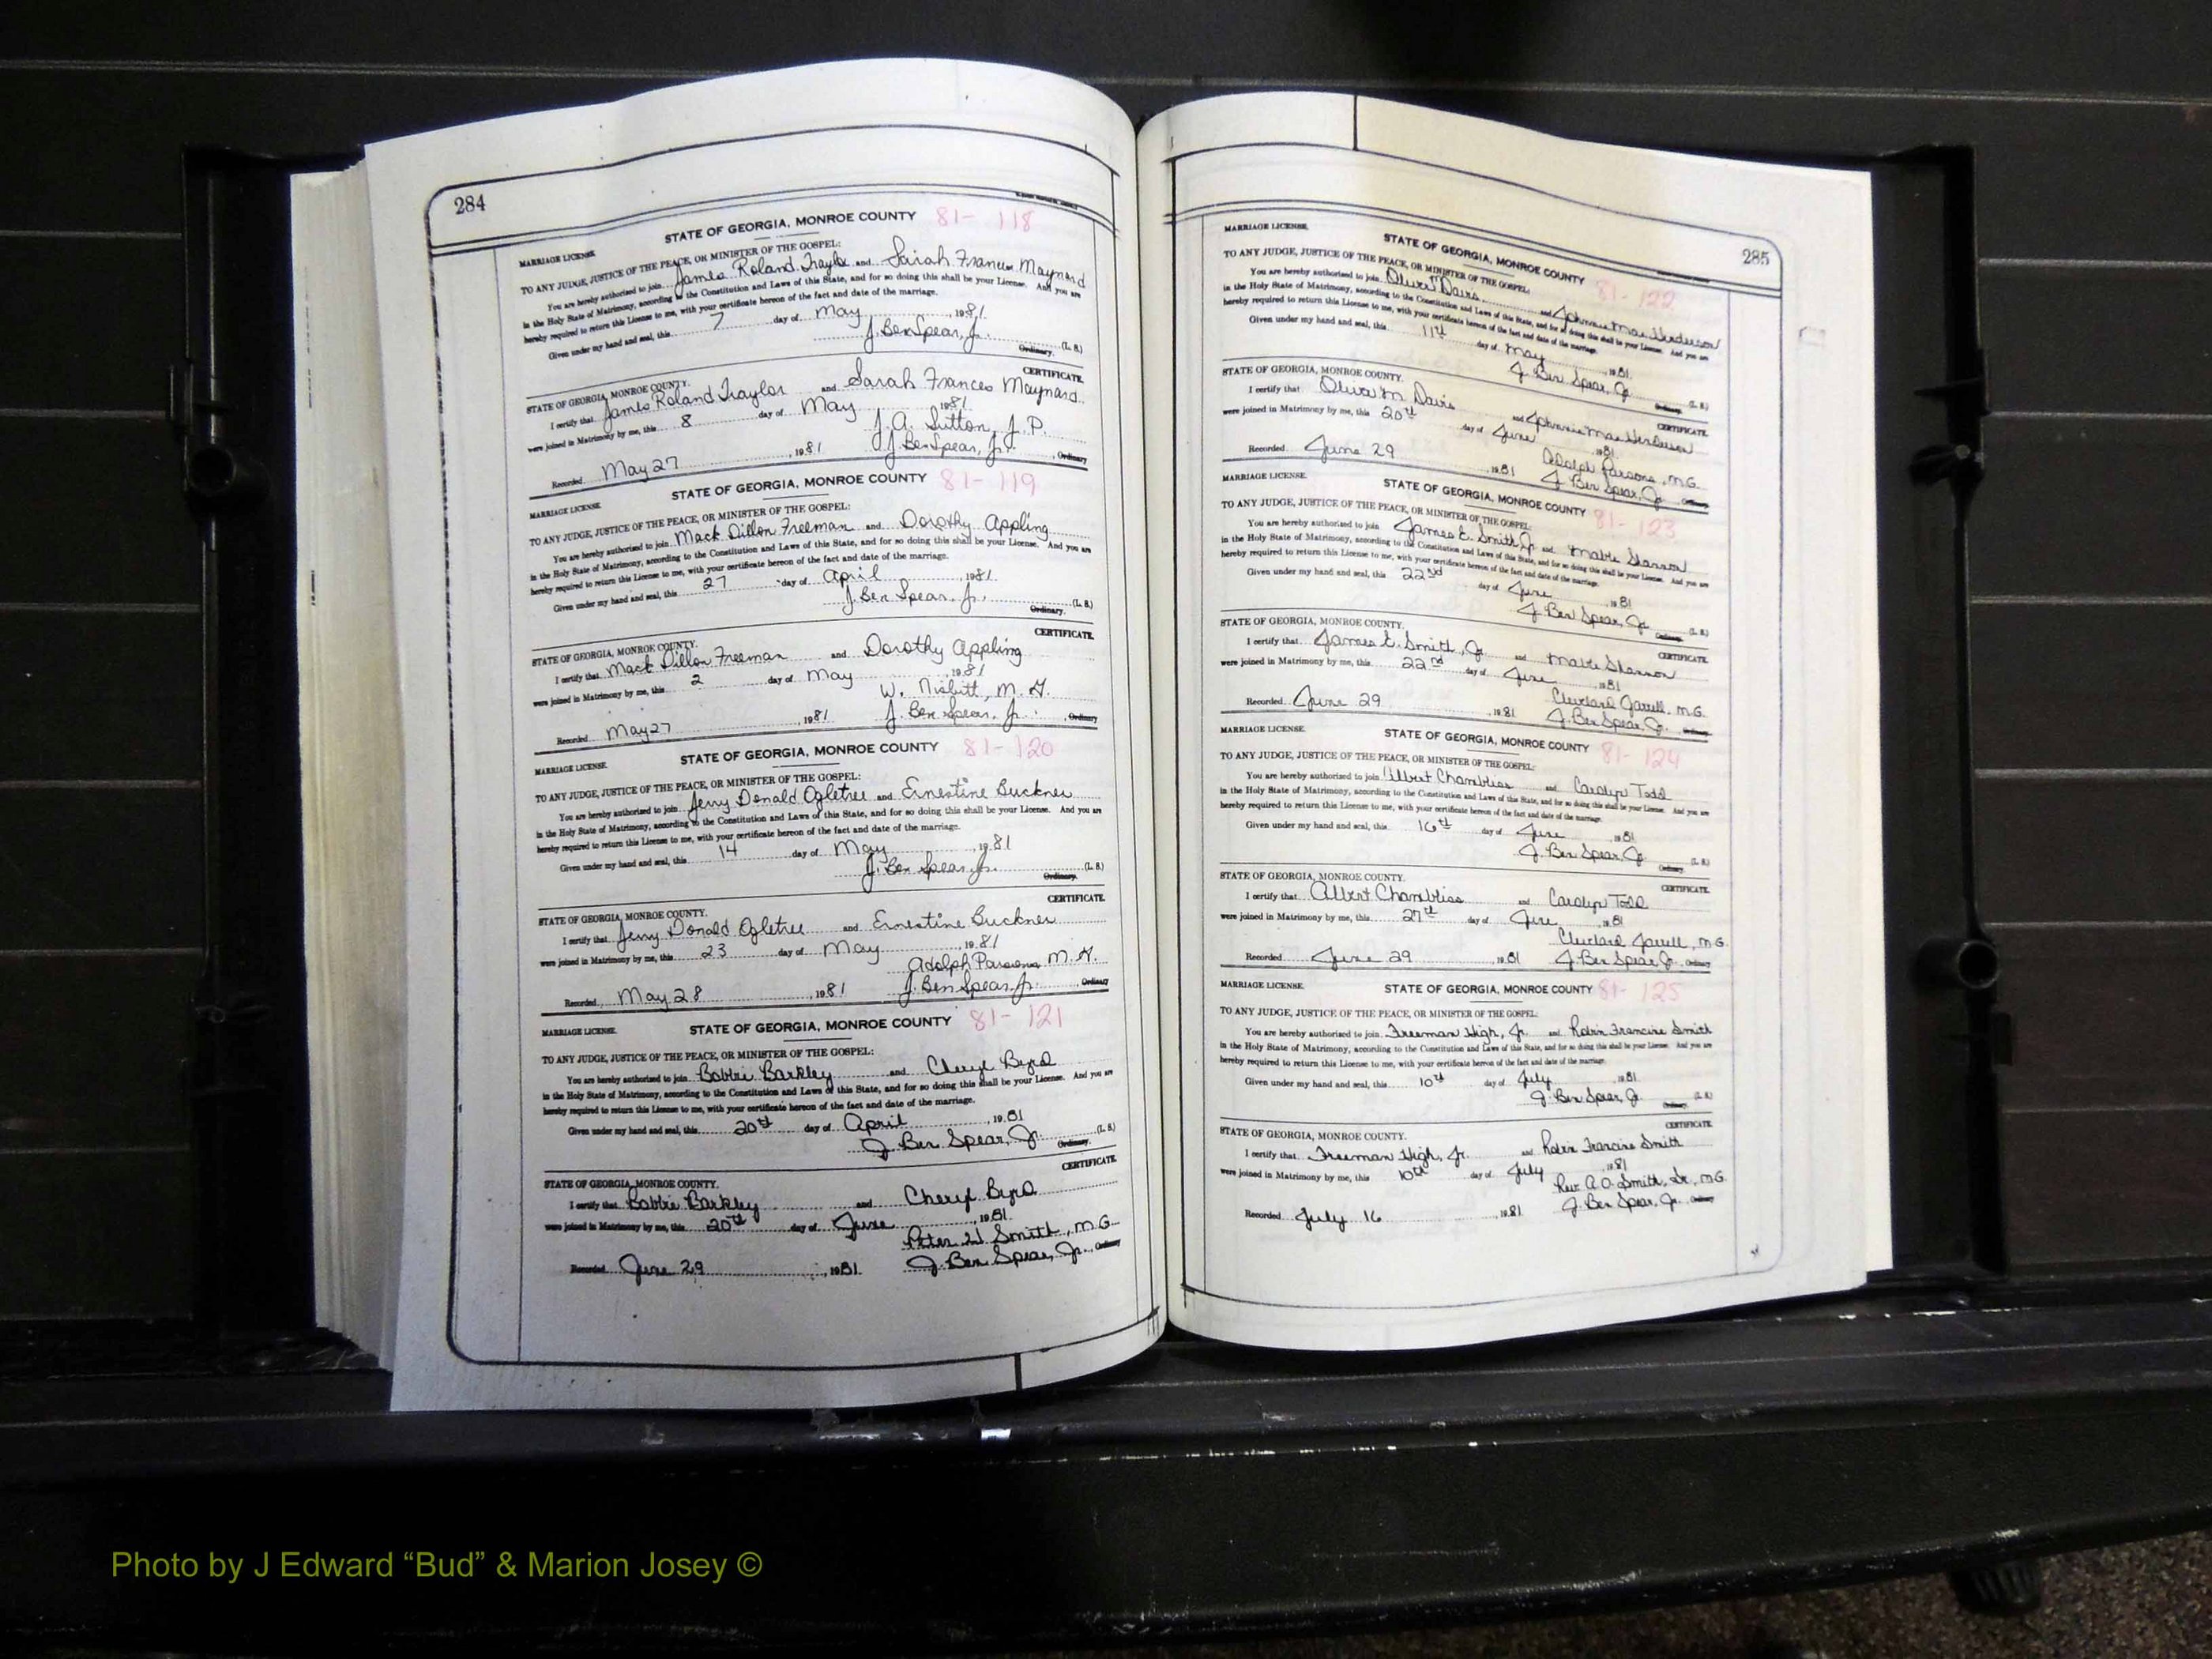 284
STATE OF GEORGIA, MONROE COUNTY 81-118
MARRIAGE LICENSE.
TO ANY JUDGE, JUSTICE OF THE PEACE, OR MINISTER OF THE GOSPEL:
You are hereby authorized to join James Roland Traylor and Sarah Frances Maynard
in the Holy State of Matrimony, according to the Constitution and Laws of this State, and for so doing this shall be your License. And you are
hereby required to return this License to me, with your certificate hereon of the fact and date of the marriage.
Given under my hand and seal, this 7 day of May, 1981.
J. Ben Spear, Jr. (L. S.)
Ordinary.
CERTIFICATE.
STATE OF GEORGIA, MONROE COUNTY.
I certify that James Roland Traylor and Sarah Frances Maynard
were joined in Matrimony by me, this 8 day of May 1981
J. A. Sutton, J. P.
Recorded May 27, 1981 J. Ben Spear, Jr., Ordinary
STATE OF GEORGIA, MONROE COUNTY 81-119
MARRIAGE LICENSE.
TO ANY JUDGE, JUSTICE OF THE PEACE, OR MINISTER OF THE GOSPEL:
You are hereby authorized to join Mack Dillon Freeman and Dorothy Appling
in the Holy State of Matrimony, according to the Constitution and Laws of this State, and for so doing this shall be your License. And you are
hereby required to return this License to me, with your certificate hereon of the fact and date of the marriage.
Given under my hand and seal, this 27 day of April, 1981
J. Ben Spear, Jr. (L. S.)
Ordinary.
CERTIFICATE.
STATE OF GEORGIA, MONROE COUNTY.
I certify that Mack Dillon Freeman and Dorothy Appling
were joined in Matrimony by me, this 2 day of May, 1981
W. Nisbitt, M. G.
Recorded May 27, 1981 J. Ben Spear, Jr., Ordinary
STATE OF GEORGIA, MONROE COUNTY 81-120
MARRIAGE LICENSE.
TO ANY JUDGE, JUSTICE OF THE PEACE, OR MINISTER OF THE GOSPEL:
You are hereby authorized to join Jerry Donald Ogletree and Ernestine Buckner
in the Holy State of Matrimony, according to the Constitution and Laws of this State, and for so doing this shall be your License. And you are
hereby required to return this License to me, with your certificate hereon of the fact and date of the marriage.
Given under my hand and seal, this 14 day of May, 1981
J. Ben Spear, Jr. (L. S.)
Ordinary.
CERTIFICATE.
STATE OF GEORGIA, MONROE COUNTY.
I certify that Jerry Donald Ogletree and Ernestine Buckner
were joined in Matrimony by me, this 23 day of May, 1981
Adolph Parsons M. G.
Recorded May 28, 1981 J. Ben Spear, Jr., Ordinary
STATE OF GEORGIA, MONROE COUNTY 81-121
MARRIAGE LICENSE.
TO ANY JUDGE, JUSTICE OF THE PEACE, OR MINISTER OF THE GOSPEL:
You are hereby authorized to join Bobbie Barkley and Cheryl Byrd
in the Holy State of Matrimony, according to the Constitution and Laws of this State, and for so doing this shall be your License. And you are
hereby required to return this License to me, with your certificate hereon of the fact and date of the marriage.
Given under my hand and seal, this 20th day of April, 1981
J. Ben Spear, Jr. (L. S.)
Ordinary.
CERTIFICATE.
STATE OF GEORGIA, MONROE COUNTY.
I certify that Bobbie Barkley and Cheryl Byrd
were joined in Matrimony by me, this 20th day of June, 1981
Peter H Smith, M.G.
Recorded June 29, 1981. J. Ben Spear, Jr., Ordinary
285
MARRIAGE LICENSE.
STATE OF GEORGIA, MONROE COUNTY 81-122
TO ANY JUDGE, JUSTICE OF THE PEACE, OR MINISTER OF THE GOSPEL:
You are hereby authorized to join Davis and Johnnie Mae Henderson
in the Holy State of Matrimony, according to the Constitution and Laws of this State, and for so doing this shall be your License. And you are
hereby required to return this License to me, with your certificate hereon of the fact and date of the marriage.
Given under my hand and seal, this 11th day of May, 1981.
J. Ben Spear, Jr. (L. S.)
Ordinary.
STATE OF GEORGIA, MONROE COUNTY.
CERTIFICATE.
I certify that M. Davis and Johnnie Mae Henderson
were joined in Matrimony by me, this 20th day of June, 1981.
Adolph Parsons, M.G.
Recorded June 29, 1981 J. Ben Spear, Jr. Ordinary
MARRIAGE LICENSE.
STATE OF GEORGIA, MONROE COUNTY 81-123
TO ANY JUDGE, JUSTICE OF THE PEACE, OR MINISTER OF THE GOSPEL:
You are hereby authorized to join James E. Smith, Jr. and Shannon
in the Holy State of Matrimony, according to the Constitution and Laws of this State, and for so doing this shall be your License. And you are
hereby required to return this License to me, with your certificate hereon of the fact and date of the marriage.
Given under my hand and seal, this 22nd day of June, 1981
J. Ben Spear, Jr. (L. S.)
Ordinary.
STATE OF GEORGIA, MONROE COUNTY.
CERTIFICATE.
I certify that James E. Smith, Jr. and Shannon
were joined in Matrimony by me, this 22nd day of June, 1981
Cleveland Jarrell, M.G.
Recorded June 29, 1981 J. Ben Spear, Jr. Ordinary
MARRIAGE LICENSE.
STATE OF GEORGIA, MONROE COUNTY 81-124
TO ANY JUDGE, JUSTICE OF THE PEACE, OR MINISTER OF THE GOSPEL:
You are hereby authorized to join Albert Chambliss and Carolyn Todd
in the Holy State of Matrimony, according to the Constitution and Laws of this State, and for so doing this shall be your License. And you are
hereby required to return this License to me, with your certificate hereon of the fact and date of the marriage.
Given under my hand and seal, this 16th day of June, 1981
J. Ben Spear, Jr. (L. S.)
Ordinary.
STATE OF GEORGIA, MONROE COUNTY.
CERTIFICATE.
I certify that Albert Chambliss and Carolyn Todd
were joined in Matrimony by me, this 27th day of June, 1981
Cleveland Jarrell, M.G.
Recorded June 29, 1981 J. Ben Spear, Jr. Ordinary
MARRIAGE LICENSE.
STATE OF GEORGIA, MONROE COUNTY 81-125
TO ANY JUDGE, JUSTICE OF THE PEACE, OR MINISTER OF THE GOSPEL:
You are hereby authorized to join Freeman High, Jr. and Robin Francine Smith
in the Holy State of Matrimony, according to the Constitution and Laws of this State, and for so doing this shall be your License. And you are
hereby required to return this License to me, with your certificate hereon of the fact and date of the marriage.
Given under my hand and seal, this 10th day of July, 1981
J. Ben Spear, Jr. (L. S.)
Ordinary.
CERTIFICATE.
STATE OF GEORGIA, MONROE COUNTY.
I certify that Freeman High, Jr. and Robin Francine Smith
were joined in Matrimony by me, this 10th day of July, 1981
Rev. A. O. Smith, Sr., M.G.
Recorded July 16, 1981 J. Ben Spear, Jr. Ordinary
Photo by J Edward “Bud” & Marion Josey ©